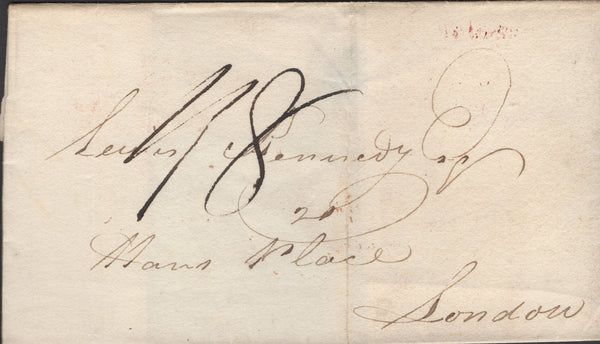 1/8
Lewis Kennedy Esq
20
Hans Place
London